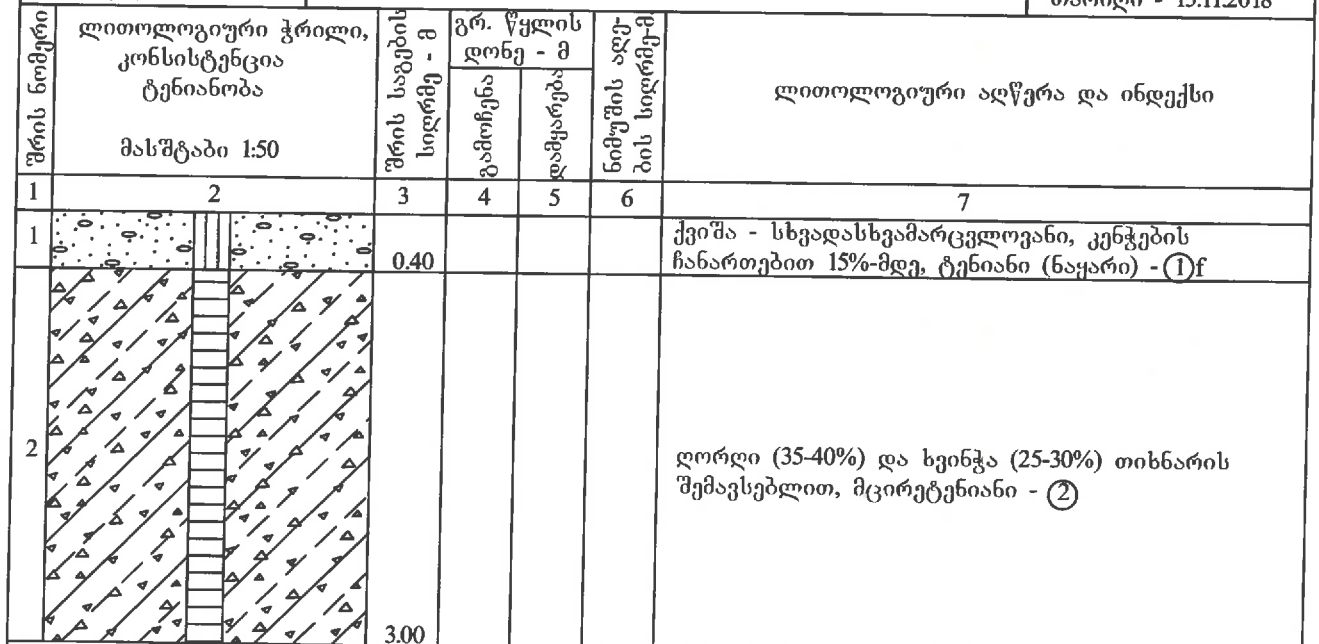 თარიღი - 15.11.2018
შრის ნომერი
ლითოლოგიური ჭრილი,
კონსისტენცია
ტენიანობა
მასშტაბი 1:50
შრის საგების
სიღრმე - მ
გრ. წყლის
დონე - მ
გამოჩენა
დამყარება
ნიმუშის აღე-
ბის სიღრმე-მ
ლითოლოგიური აღწერა და ინდექსი
1 2 3 4 5 6 7
1
0.40
ქვიშა - სხვადასხვამარცვლოვანი, კენჭების
ჩანართებით 15%-მდე, ტენიანი (ნაყარი) - ①f
2
ღორღი (35-40%) და ხვინჭა (25-30%) თიხნარის
შემავსებლით, მცირეტენიანი - ②
3.00